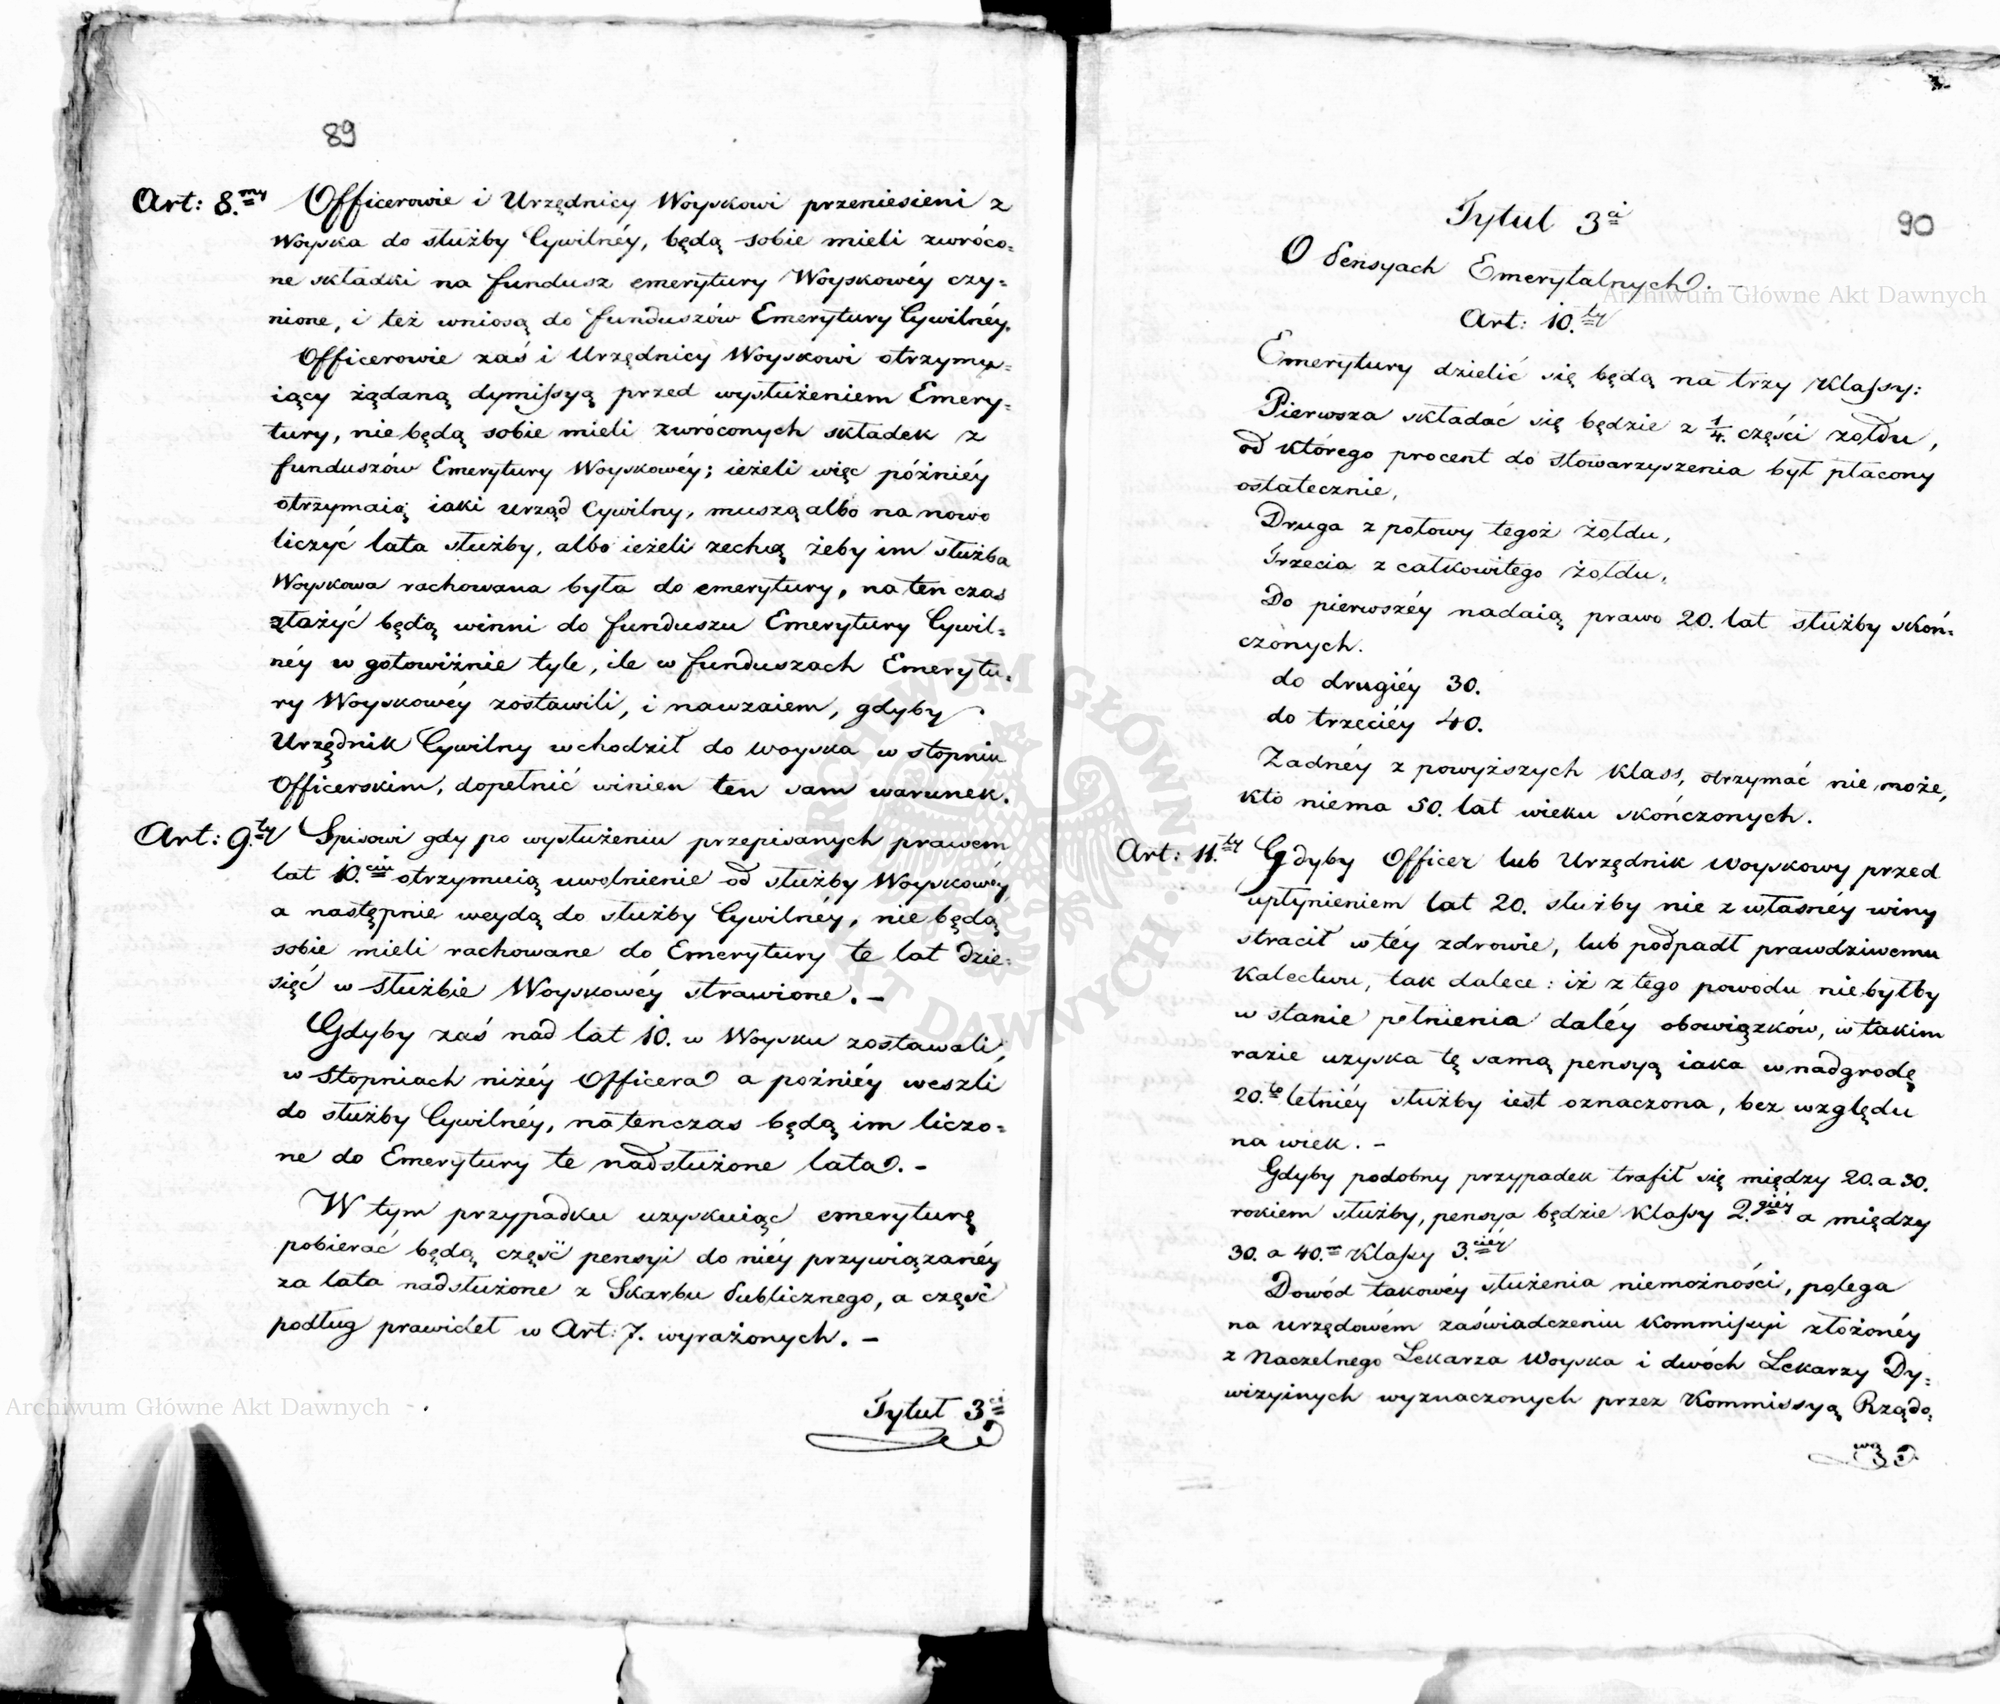 89
Art: 8.my Officerowie i Urzędnicy Woyskowi przeniesieni z
Woyska do służby Cywilnéy, będą sobie mieli zwróco=
ne składki na fundusz emerytury Woyskowéy czy=
nione, i też wniosą do funduszów Emerytury Cywilnéy.
Officerowie zaś i Urzędnicy Woyskowi otrzymu=
iący żądaną dymissyą przed wysłużeniem Emery=
tury, nie będą sobie mieli zwróconych składek z
funduszów Emerytury Woyskowéy; ieżeli więc późniéy
otrzymaią iaki urząd Cywilny, muszą albo na nowo
liczyć lata służby, albo ieżeli zechcą żeby im służba
Woyskowa rachowana była do emerytury, na ten czas
złożyć będą winni do funduszu Emerytury Cywil=
néy w gotowiźnie tyle, ile w funduszach Emerytu=
ry Woyskowéy zostawili, i nawzaiem, gdyby
Urzędnik Cywilny wchodził do woyska w stopniu
Officerskim, dopełnić winien ten sam warunek.
Art: 9.ty Spisowi gdy po wysłużeniu przepisanych prawem
lat 10.ciu otrzymuią uwolnienie od służby Woyskowéy
a następnie weydą do służby Cywilnéy, nie będą
sobie mieli rachowane do Emerytury te lat dzie=
sięć w służbie Woyskowéy strawione. –
Gdyby zaś nad lat 10. w Woysku zostawali,
w stopniach niżéy Officera a poźniéy weszli
do służby Cywilnéy, natenczas będą im liczo=
ne do Emerytury te nadsłużone lata. –
W tym przypadku uzyskuiąc emeryturę
pobierać będą część pensyi do niéy przywiązanéy
za lata nadsłużone z Skarbu Publicznego, a część
podług prawideł w Art: 7. wyrażonych. –
Tytuł 3ci
90
Tytuł 3ci
O Pensyach Emerytalnych. –
Art: 10.ty
Emerytury dzielić się będą na trzy Klassy:
Pierwsza składać się będzie z 1/4. części żołdu,
od którego procent do stowarzyszenia był płacony
ostatecznie,
Druga z połowy tegoż żołdu,
Trzecia z całkowitego żołdu,
Do pierwszéy nadaią prawo 20. lat służby skoń=
czonych.
do drugiéy 30.
do trzeciéy 40.
Żadnéy z powyższych Klass, otrzymać nie może,
kto niema 50. lat wieku skończonych.
Art: 11.ty Gdyby Officer lub Urzędnik woyskowy przed
upłynieniem lat 20. służby nie z własnéy winy
stracił w téy zdrowie, lub podpadł prawdziwemu
Kalectwu, tak dalece: iż z tego powodu nie byłby
w stanie pełnienia daléy obowiązków, w takim
razie uzyska tę samą pensyą iaka w nadgrodę
20.to letniéy służby iest oznaczona, bez względu
na wiek. –
Gdyby podobny przypadek trafił się między 20. a 30.
rokiem służby, pensya będzie Klassy 2.giéy a między
30. a 40.m Klassy 3.ciéy
Dowód takowéy służenia niemożności, polega
na urzędowém zaświadczeniu Kommissyi złożonéy
z Naczelnego Lekarza Woyska i dwóch Lekarzy Dy=
wizyinych wyznaczonych przez Kommissyą Rządo=
wą
Archiwum Główne Akt Dawnych
ARCHIWUM GŁÓWNE AKT DAWNYCH
Archiwum Główne Akt Dawnych